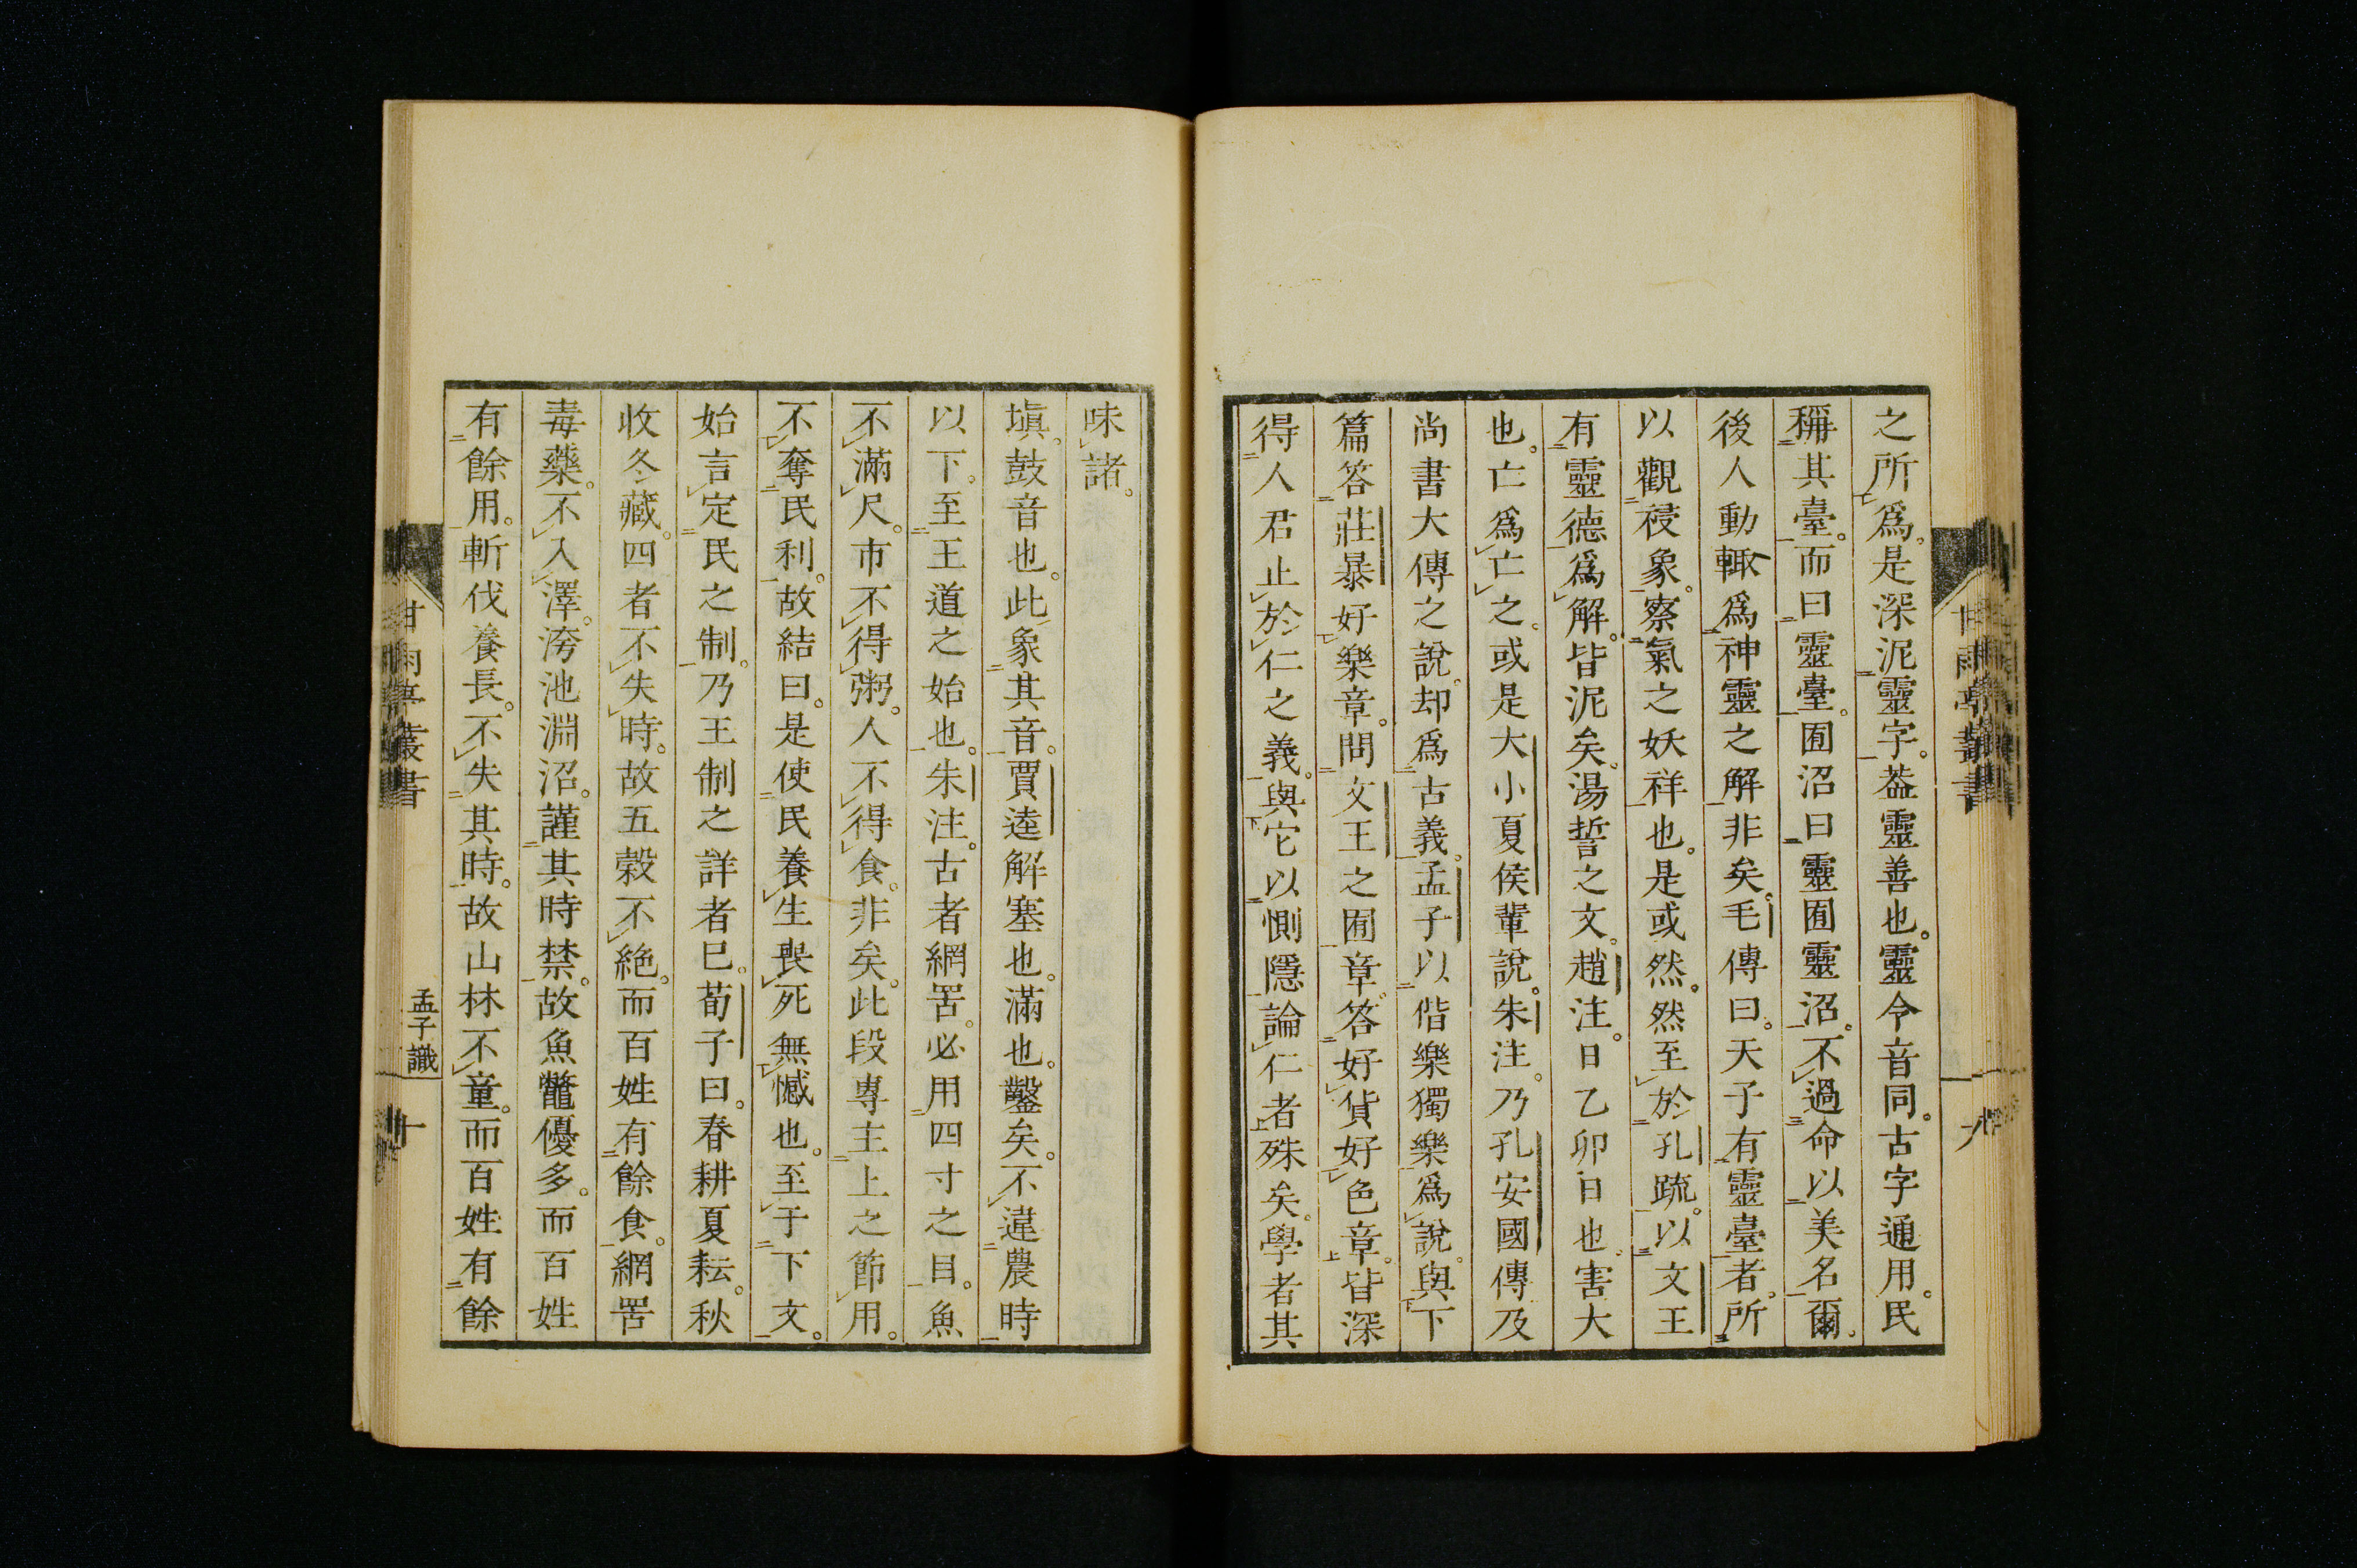 之所爲。是深泥靈字。蓋靈善也。靈令音同。古字通用。民
稱其臺。而曰靈臺。囿沼曰靈囿靈沼。不過命以美名爾。
後人動輙爲神靈之解非矣。毛傳曰。天子有靈臺者。所
以觀祲象。察氣之妖祥也。是或然。然至於孔疏。以文王
有靈德爲解。皆泥矣。湯誓之文。趙注。日乙卯日也。害大
也。亡爲亡之。或是大小夏侯輩說。朱注。乃孔安國傳及
尚書大傳之說。却爲古義。孟子以偕樂獨樂爲說。與下
篇答莊暴好樂章。問文王之囿章。答好貨好色章。皆深
得人君止於仁之義。與它以惻隱論仁者殊矣。學者其
味諸。
塡。鼓音也。此象其音。賈逵解塞也。滿也。鑿矣。不違農時
以下。至王道之始也。朱注。古者網罟。必用四寸之目。魚
不滿尺。市不得粥。人不得食。非矣。此段專主上之節用。
不奪民利。故結曰。是使民養生喪死無憾也。至于下文。
始言定民之制。乃王制之詳者已。荀子曰。春耕夏耘。秋
收冬藏。四者不失時。故五穀不絶。而百姓有餘食。網罟
毒藥。不入澤。洿池淵沼。謹其時禁。故魚鼈優多。而百姓
有餘用。斬伐養長。不失其時。故山林不童。而百姓有餘
甘雨亭叢書
孟子識
十
甘雨亭叢書
九